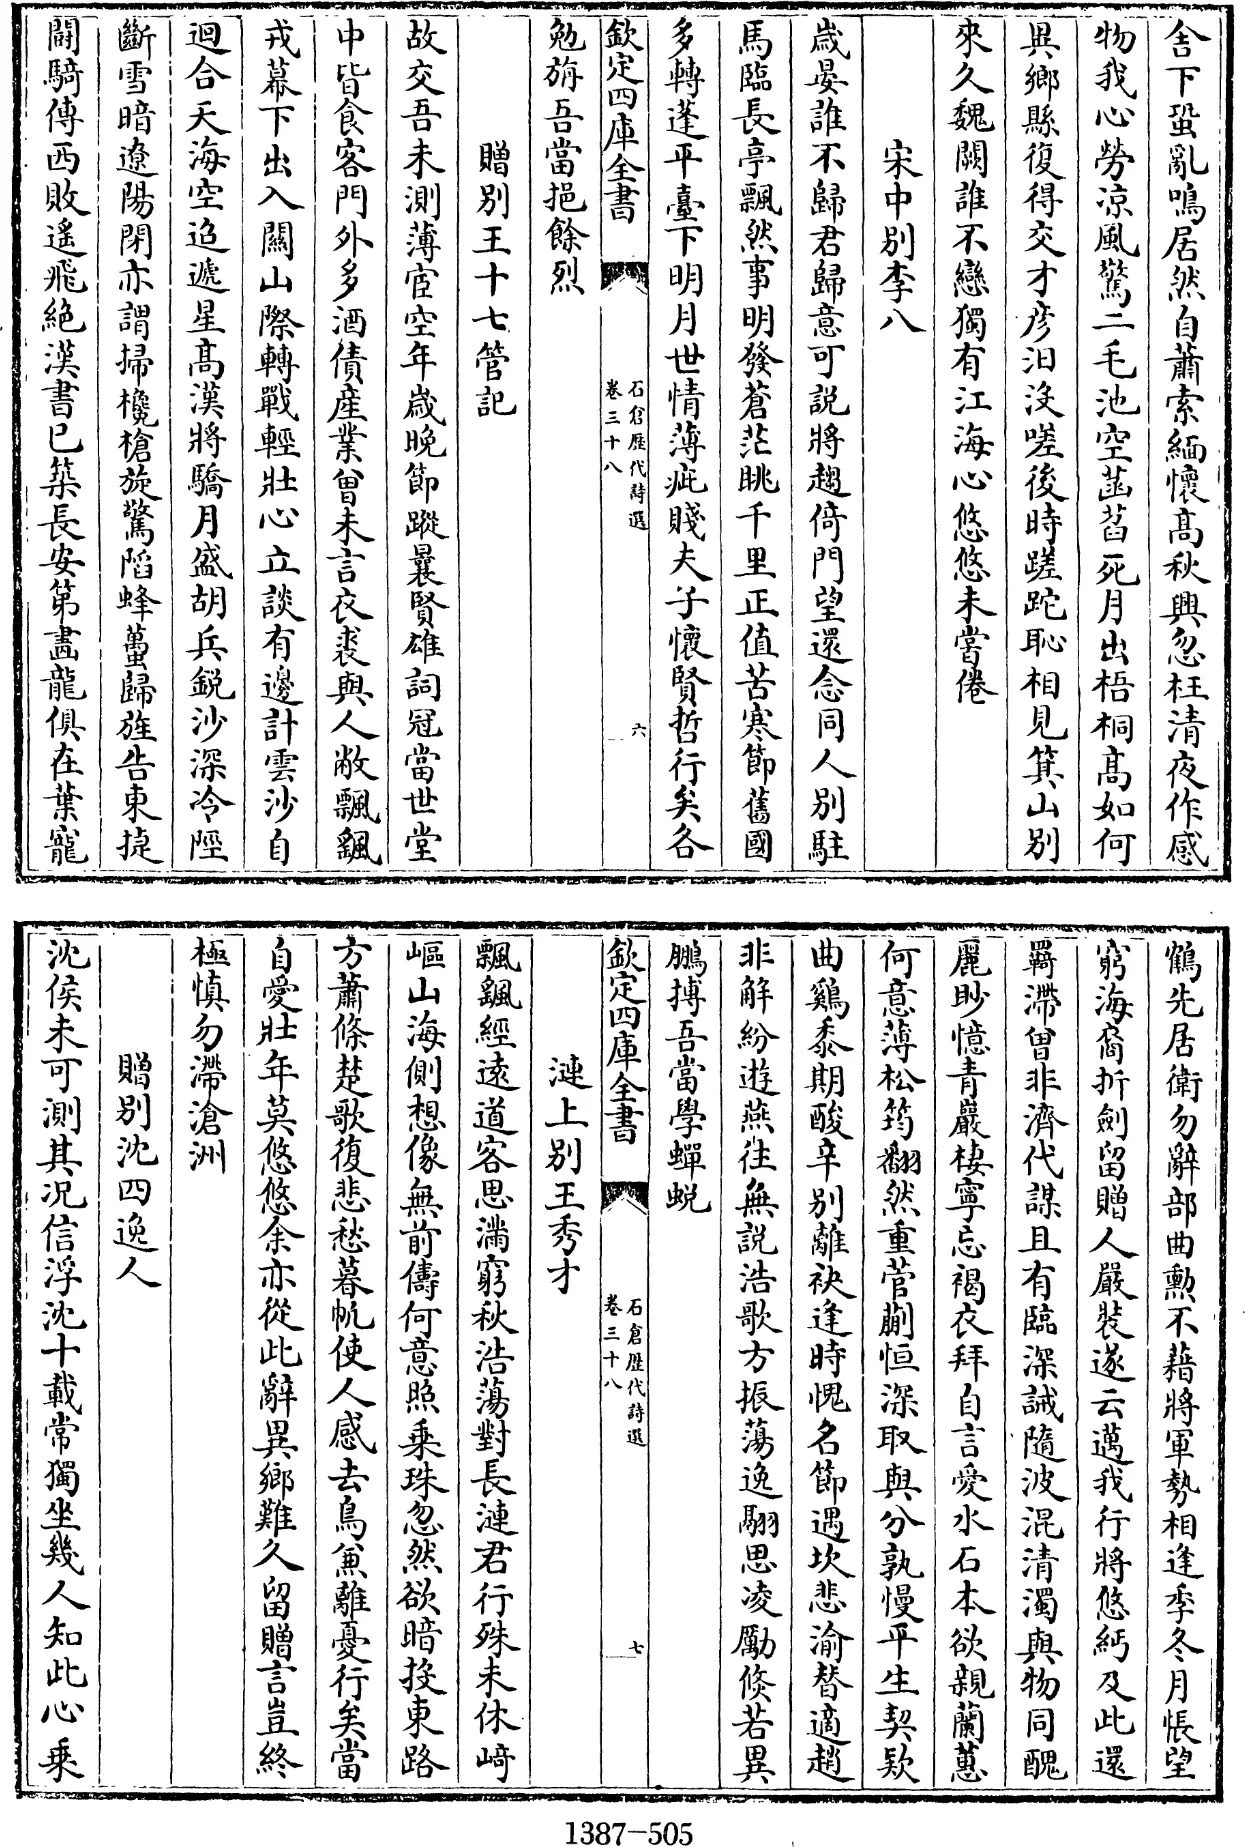 舎下蛩亂鳴居然自蕭索緬懷髙秋興忽枉清夜作感
物我心勞凉風驚二毛池空菡萏死月出梧桐髙如何
異鄉縣復得交才彦汨没嗟後時蹉跎恥相見箕山别
來久魏闕誰不戀獨有江海心悠悠未嘗倦
宋中别李八
嵗晏誰不歸君歸意可説將趨倚門望還念同人别駐
馬臨長亭飄然事明發蒼茫眺千里正值苦寒節舊國
多轉蓬平臺下明月世情薄疵賤夫子懷賢哲行矣各
欽定四庫全書
石倉歴代詩選
卷三十八
六
勉旃吾當挹餘烈
贈别王十七管記
故交吾未測薄宦空年嵗晚節蹤曩賢雄詞冠當世堂
中皆食客門外多酒債産業曾未言衣裘與人敝飄飖
戎幕下出入關山際轉戰輕壯心立談有邊計雲沙自
迴合天海空迢遞星髙漢將驕月盛胡兵鋭沙深冷陘
斷雪暗遼陽閉亦謂掃欃槍旋驚陷蜂蠆歸旌告東捷
鬬騎傳西敗遥飛絶漢書已築長安第畫龍俱在葉寵
鶴先居衛勿辭部曲勲不藉將軍勢相逢季冬月悵望
窮海裔折劍留贈人嚴裝遂云邁我行將悠緬及此還
羈滯曾非濟代謀且有臨深誡隨波混清濁與物同醜
麗眇憶青巖棲寧忘褐衣拜自言愛水石本欲親蘭蕙
何意薄松筠翻然重菅蒯恒深取與分孰慢平生契欵
曲鷄黍期酸辛别離袂逢時愧名節遇坎悲渝替適趙
非解紛遊燕往無説浩歌方振蕩逸翮思凌勵倐若異
鵬搏吾當學蟬蜕
欽定四庫全書
石倉歴代詩選
卷三十八
七
漣上别王秀才
飄飖經逺道客思滿窮秋浩蕩對長漣君行殊未休﨑
嶇山海側想像無前儔何意照乘珠忽然欲暗投東路
方蕭條楚歌復悲愁暮帆使人感去鳥兼離憂行矣當
自愛壯年莫悠悠余亦從此辭異鄉難久留贈言豈終
極慎勿滯滄洲
贈别沈四逸人
沈侯未可測其況信浮沈十載常獨坐幾人知此心乗
1387-505